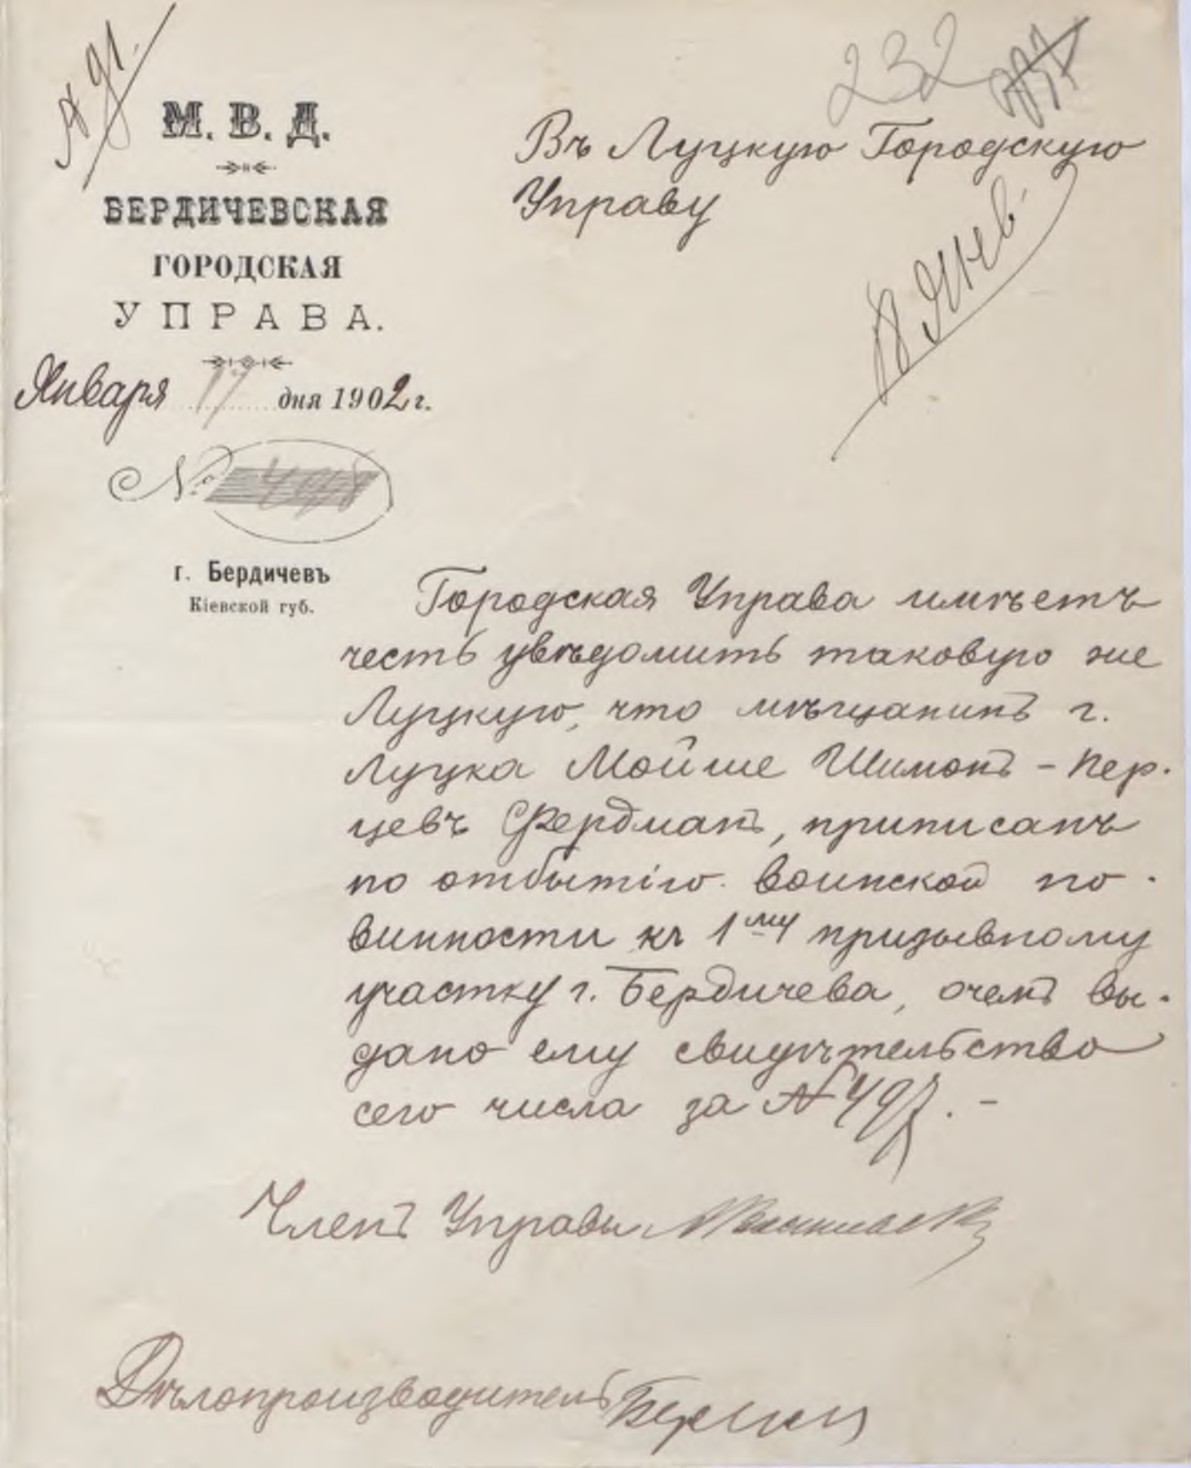 № 91.
232
М. В. Д.
БЕРДИЧЕВСКАЯ
ГОРОДСКАЯ
УПРАВА.
Января 17 дня 1902 г.
№
г. Бердичевъ
Кіевской губ.
Въ Луцкую Городскую
Управу
Городская Управа имѣетъ
честь увѣдомить таковую же
Луцкую, что мѣщанинъ г.
Луцка Мойше Шимонъ - Пер-
цевъ Фердманъ, приписанъ
по отбытію воинской по-
винности къ 1му призывному
участку г. Бердичева, о чемъ вы-
дано ему свидѣтельство
сего числа за № 497. -
Членъ Управы
Дѣлопроизводитель